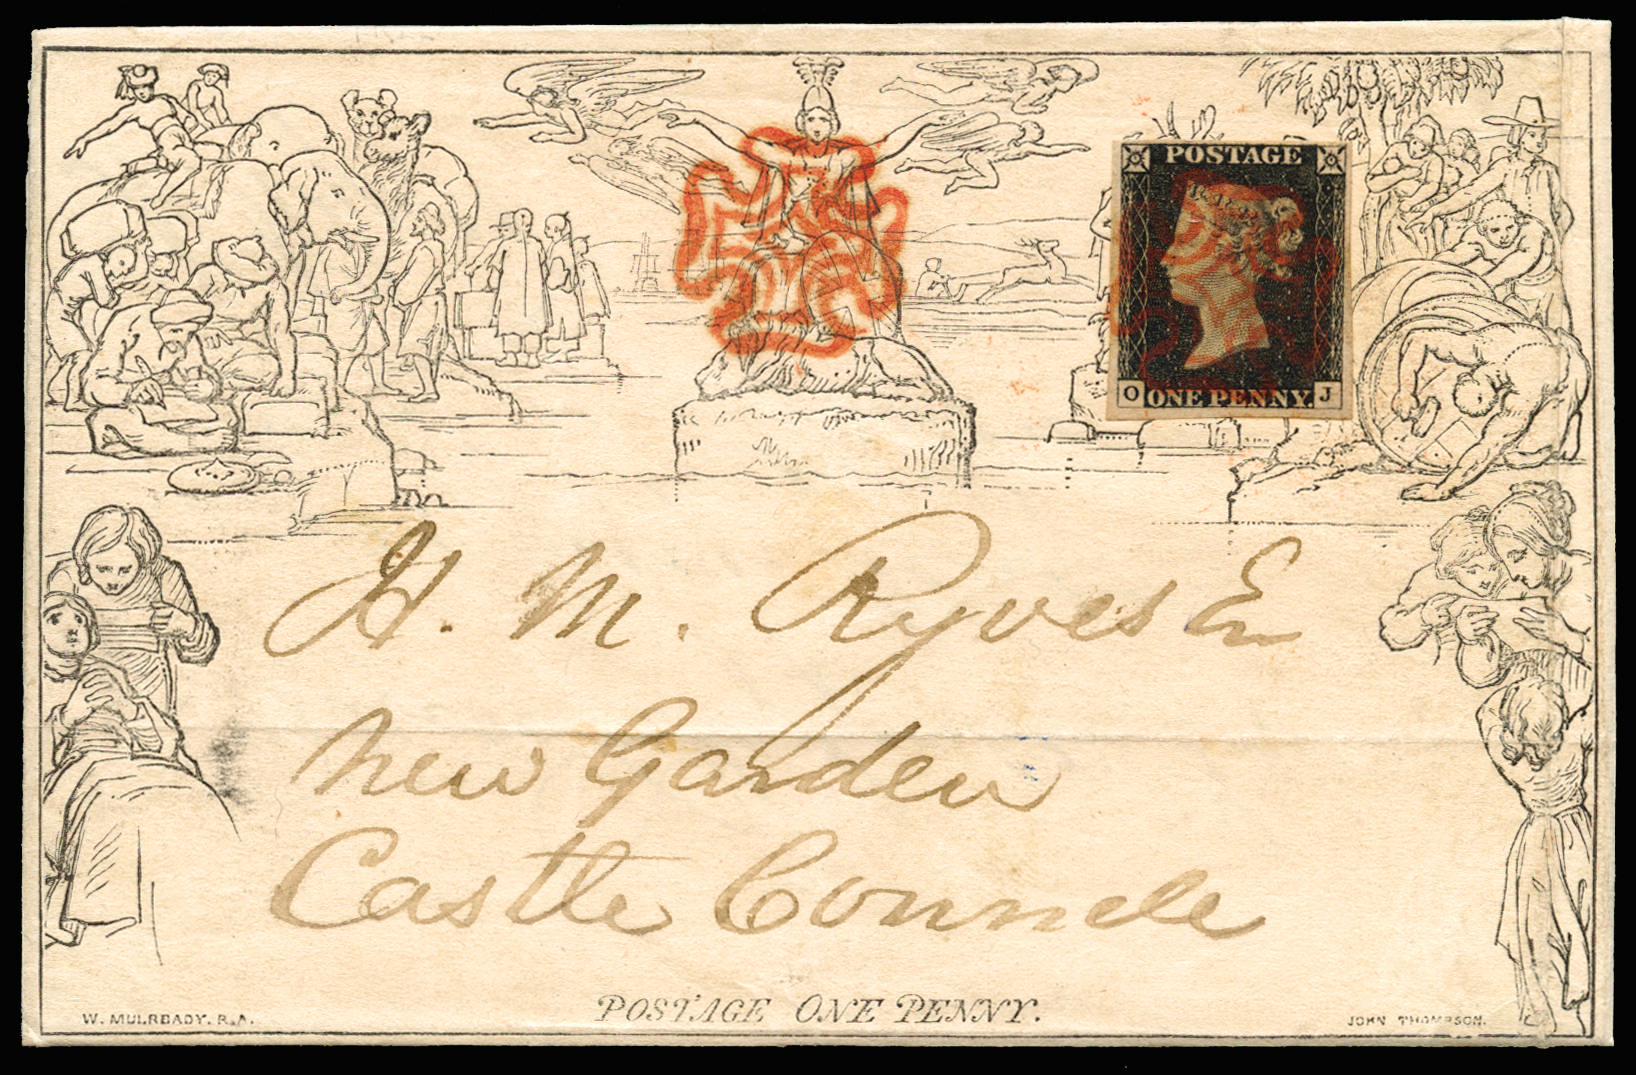 POSTAGE
O ONE PENNY. J
H. M. Ryves Er
New Garden
Castle Connele
POSTAGE ONE PENNY.
W. MULREADY. R.A.
JOHN THOMPSON.